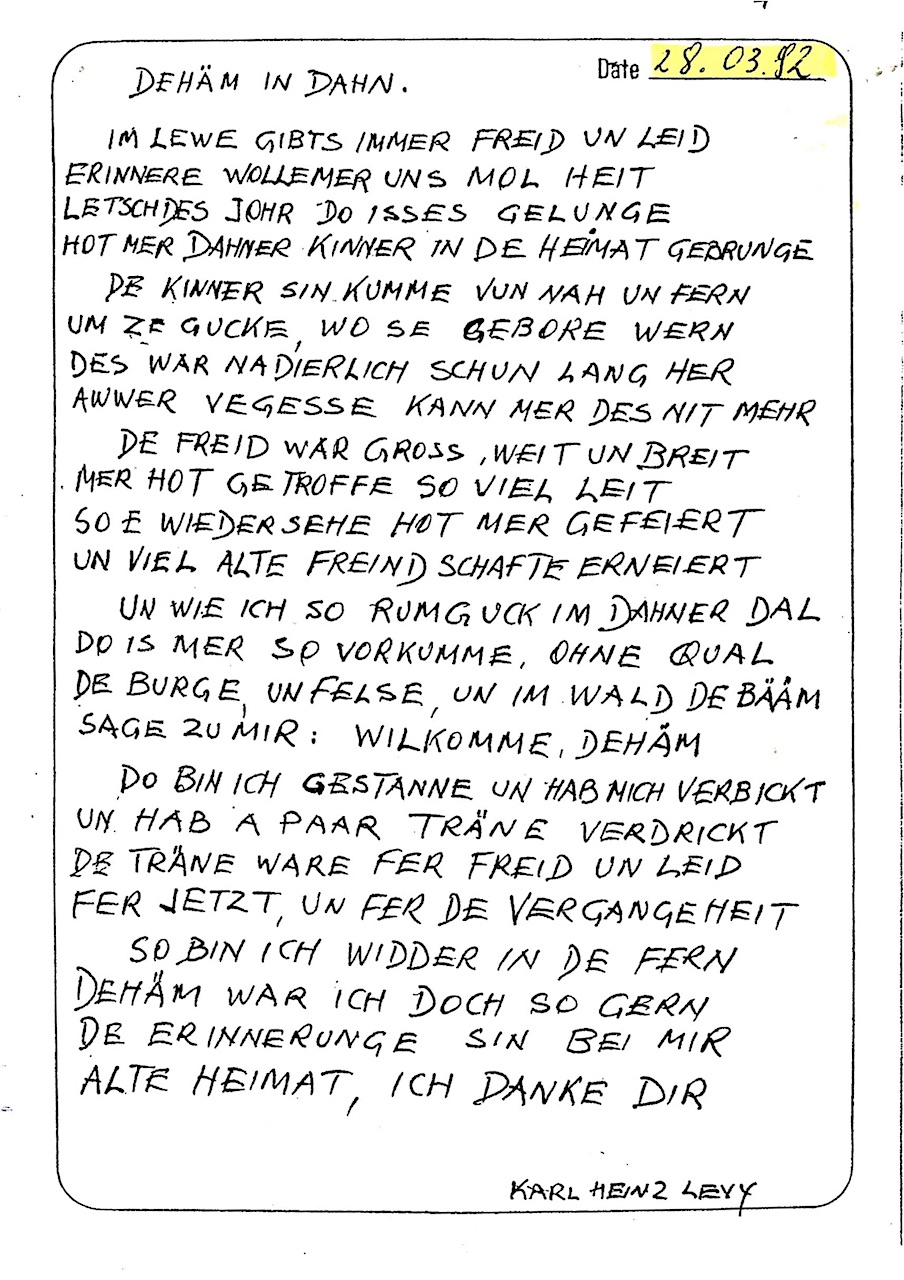 DEHÄM IN DAHN.
Date 28.03.92
IM LEWE GIBTS IMMER FREID UN LEID
ERINNERE WOLLEMER UNS MOL HEIT
LETSCHDES JOHR DO ISSES GELUNGE
HOT MER DAHNER KINNER IN DE HEIMAT GEBRUNGE
DE KINNER SIN KUMME VUN NAH UN FERN
UM ZE GUCKE, WO SE GEBORE WERN
DES WAR NADIERLICH SCHUN LANG HER
AWWER VEGESSE KANN MER DES NIT MEHR
DE FREID WAR GROSS, WEIT UN BREIT
MER HOT GETROFFE SO VIEL LEIT
SO E WIEDERSEHE HOT MER GEFEIERT
UN VIEL ALTE FREINDSCHAFTE ERNEIERT
UN WIE ICH SO RUMGUCK IM DAHNER DAL
DO IS MER SO VORKUMME, OHNE QUAL
DE BURGE, UN FELSE, UN IM WALD DE BÄÄM
SAGE ZU MIR: WILKOMME, DEHÄM
DO BIN ICH GESTANNE UN HAB MICH VERBICKT
UN HAB A PAAR TRÄNE VERDRICKT
DE TRÄNE WARE FER FREID UN LEID
FER JETZT, UN FER DE VERGANGEHEIT
SO BIN ICH WIDDER IN DE FERN
DEHÄM WAR ICH DOCH SO GERN
DE ERINNERUNGE SIN BEI MIR
ALTE HEIMAT, ICH DANKE DIR
KARL HEINZ LEVY